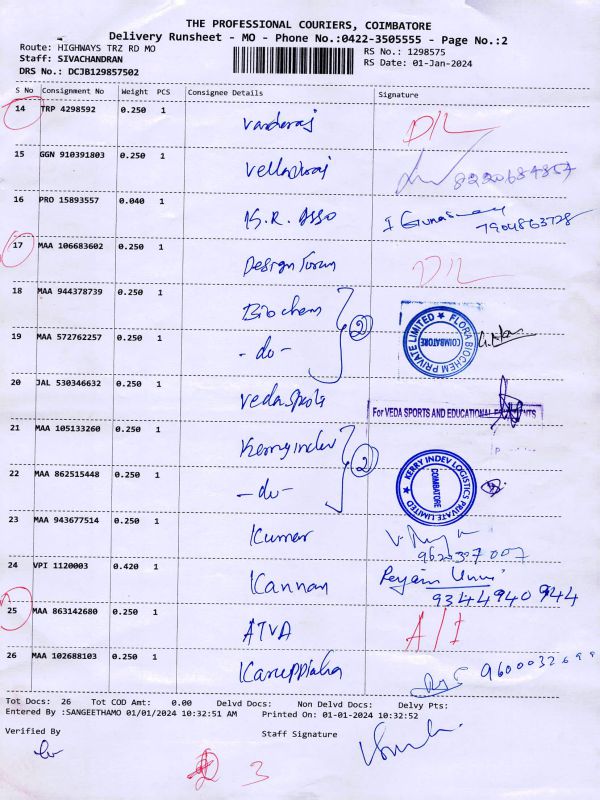 THE PROFESSIONAL COURIERS, COIMBATORE
Delivery Runsheet - MO - Phone No.:0422-3505555 - Page No.:2
Route: HIGHWAYS TRZ RD MO
RS No.: 1298575
Staff: SIVACHANDRAN
RS Date: 01-Jan-2024
DRS No.: DCJB129857502
S No Consignment No Weight PCS Consignee Details Signature
14 TRP 4298592 0.250 1 D/L
15 GGN 910391803 0.250 1
16 PRO 15893557 0.040 1 K.R. Asso
17 MAA 106683602 0.250 1 Design forum D/L
18 MAA 944378739 0.250 1 Biochem 2
FLORA BIOCHEM PRIVATE LIMITED COIMBATORE
19 MAA 572762257 0.250 1 -do-
20 JAL 530346632 0.250 1 Veda Sports
For VEDA SPORTS AND EDUCATIONAL
21 MAA 105133260 0.250 1 Kerry indev 2
KERRY INDEV LOGISTICS PRIVATE LIMITED COIMBATORE
22 MAA 862515448 0.250 1 -do-
23 MAA 943677514 0.250 1 Kumar
9620307007
24 VPI 1120003 0.420 1 Kannan
9344940944
25 MAA 863142680 0.250 1 ATVA A/I
26 MAA 102688103 0.250 1 Karuppiaha
Tot Docs: 26 Tot COD Amt: 0.00 Delvd Docs: Non Delvd Docs: Delvy Pts:
Entered By :SANGEETHAMO 01/01/2024 10:32:51 AM Printed On: 01-01-2024 10:32:52
Verified By Staff Signature
3